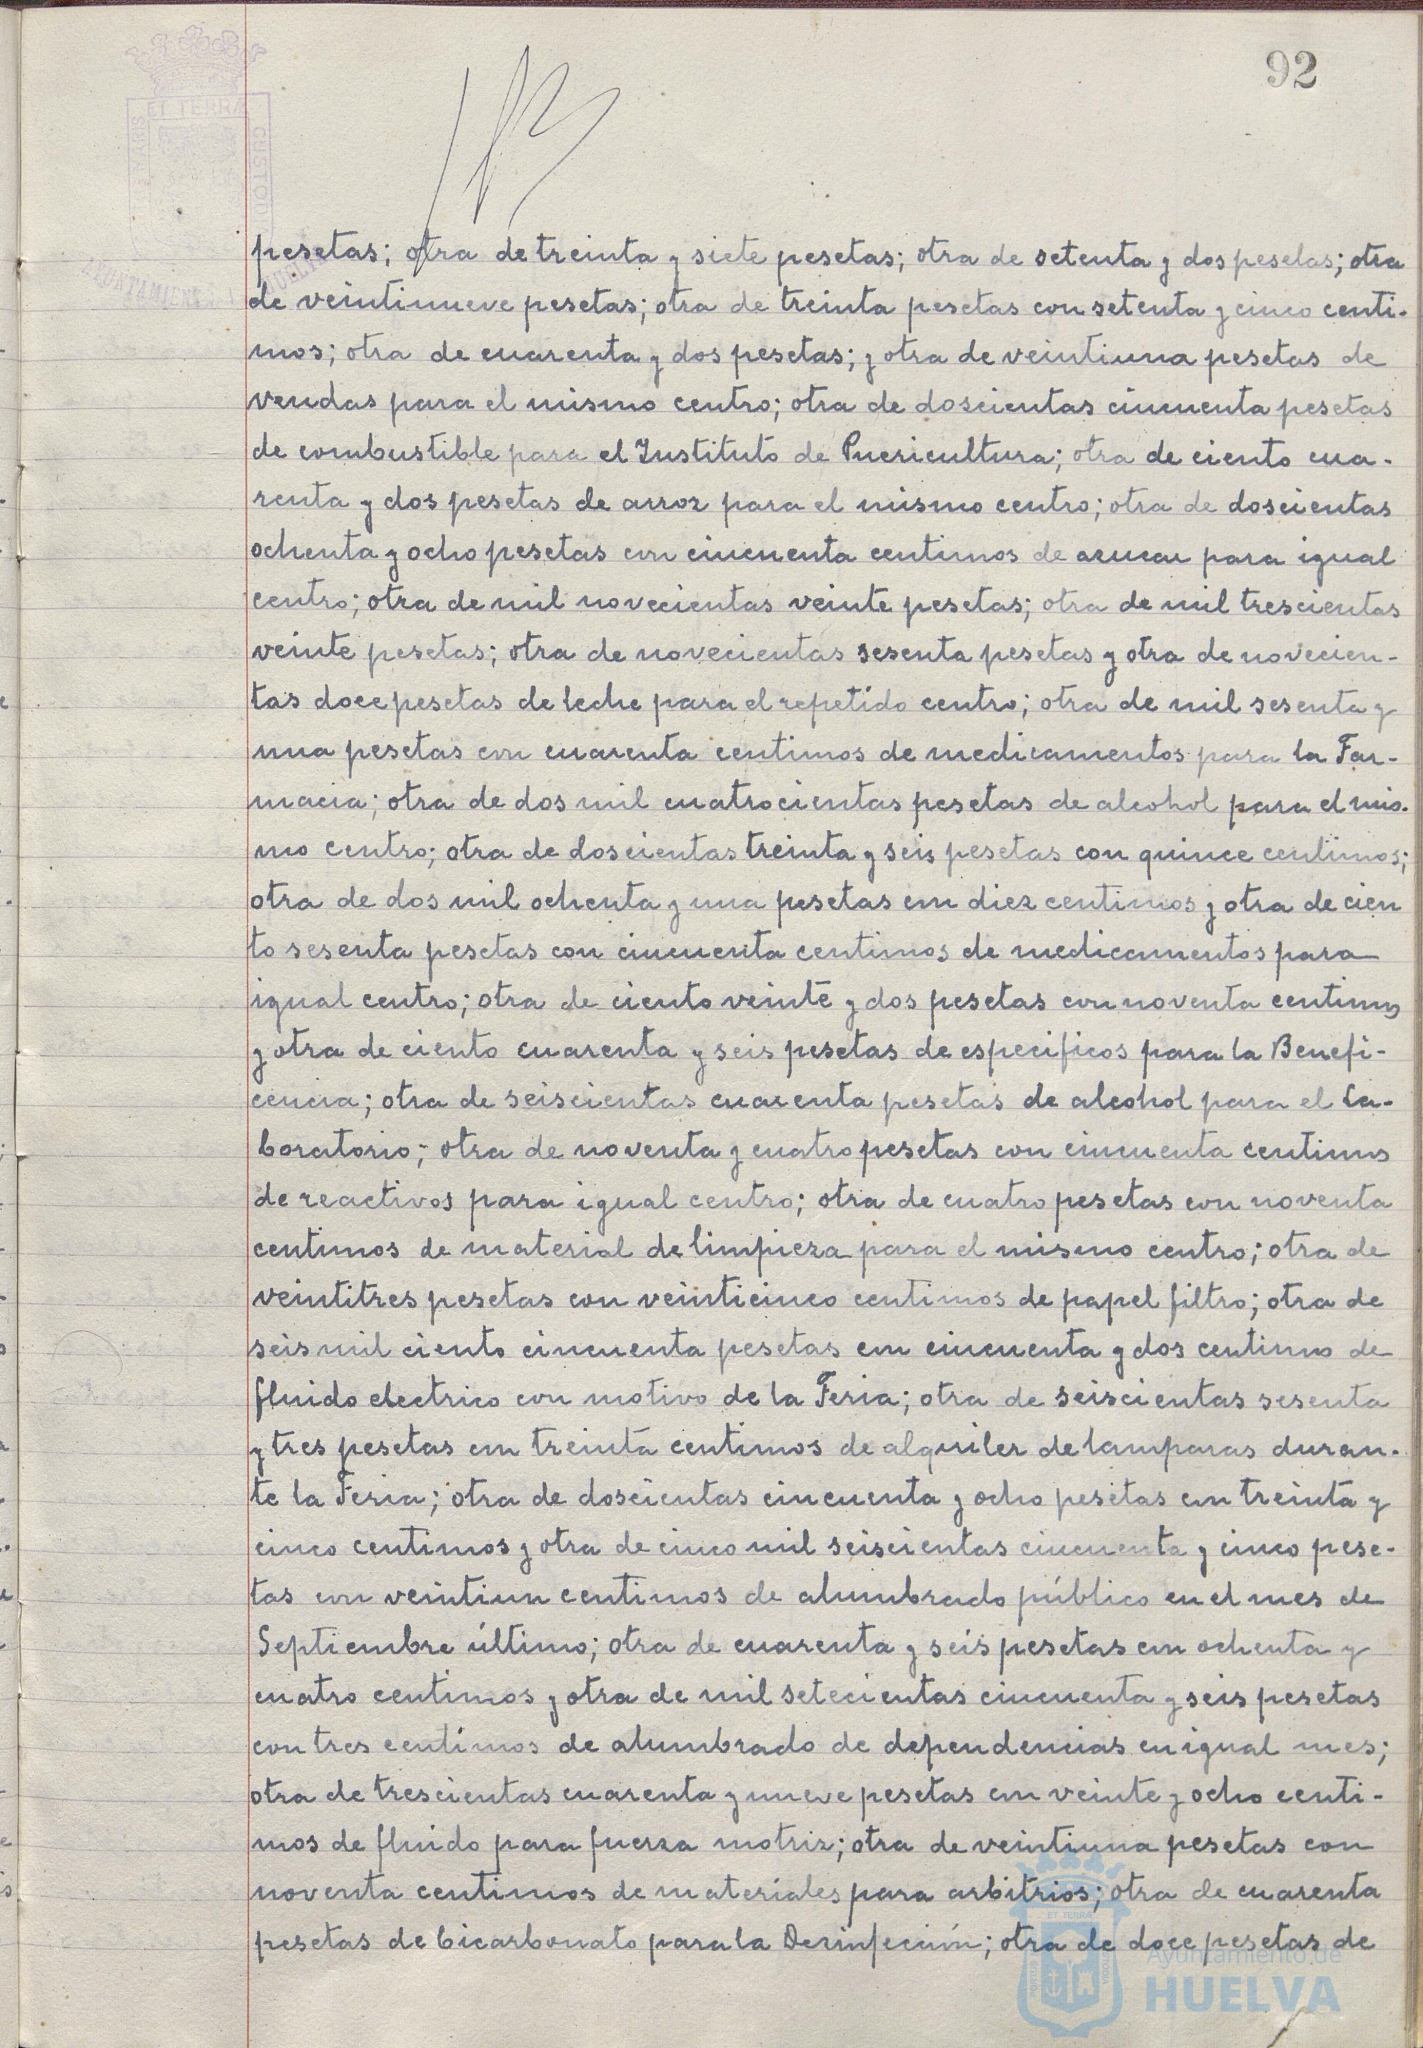 92
ET TERRÆ
CUSTOD
pesetas; otra de treinta y siete pesetas; otra de setenta y dos pesetas; otra
de veintinueve pesetas; otra de treinta pesetas con setenta y cinco centi-
mos; otra de cuarenta y dos pesetas; y otra de veintiuna pesetas de
vendas para el mismo centro; otra de doscientas cincuenta pesetas
de combustible para el Instituto de Puericultura; otra de ciento cua-
renta y dos pesetas de arroz para el mismo centro; otra de doscientas
ochenta y ocho pesetas con cincuenta centimos de azucar para igual
centro; otra de mil novecientas veinte pesetas; otra de mil trescientas
veinte pesetas; otra de novecientas sesenta pesetas y otra de novecien-
tas doce pesetas de leche para el repetido centro; otra de mil sesenta y
una pesetas con cuarenta centimos de medicamentos para la Far-
macia; otra de dos mil cuatrocientas pesetas de alcohol para el mis-
mo centro; otra de doscientas treinta y seis pesetas con quince centimos;
otra de dos mil ochenta y una pesetas con diez centimos y otra de cien
to sesenta pesetas con cincuenta centimos de medicamentos para
igual centro; otra de ciento veinte y dos pesetas con noventa centimos
y otra de ciento cuarenta y seis pesetas de especificos para la Benefi-
cencia; otra de seiscientas cuarenta pesetas de alcohol para el La-
boratorio; otra de noventa y cuatro pesetas con cincuenta centimos
de reactivos para igual centro; otra de cuatro pesetas con noventa
centimos de material de limpieza para el mismo centro; otra de
veintitres pesetas con veinticinco centimos de papel filtro; otra de
seis mil ciento cincuenta pesetas con cincuenta y dos centimo de
fluido electrico con motivo de la Feria; otra de seiscientas sesenta
y tres pesetas con treinta centimos de alquiler de lamparas duran-
te la Feria; otra de doscientas cincuenta y ocho pesetas con treinta y
cinco centimos y otra de cinco mil seiscientas cincuenta y cinco pese-
tas con veintiun centimos de alumbrado público en el mes de
Septiembre último; otra de cuarenta y seis pesetas con ochenta y
cuatro centimos y otra de mil setecientas cincuenta y seis pesetas
con tres centimos de alumbrado de dependencias en igual mes;
otra de trescientas cuarenta y nueve pesetas con veinte y ocho centi-
mos de fluido para fuerza motriz; otra de veintiuna pesetas con
noventa centimos de materiales para arbitrios; otra de cuarenta
pesetas de bicarbonato para la Desinfección; otra de doce pesetas de
Ayuntamiento de
HUELVA